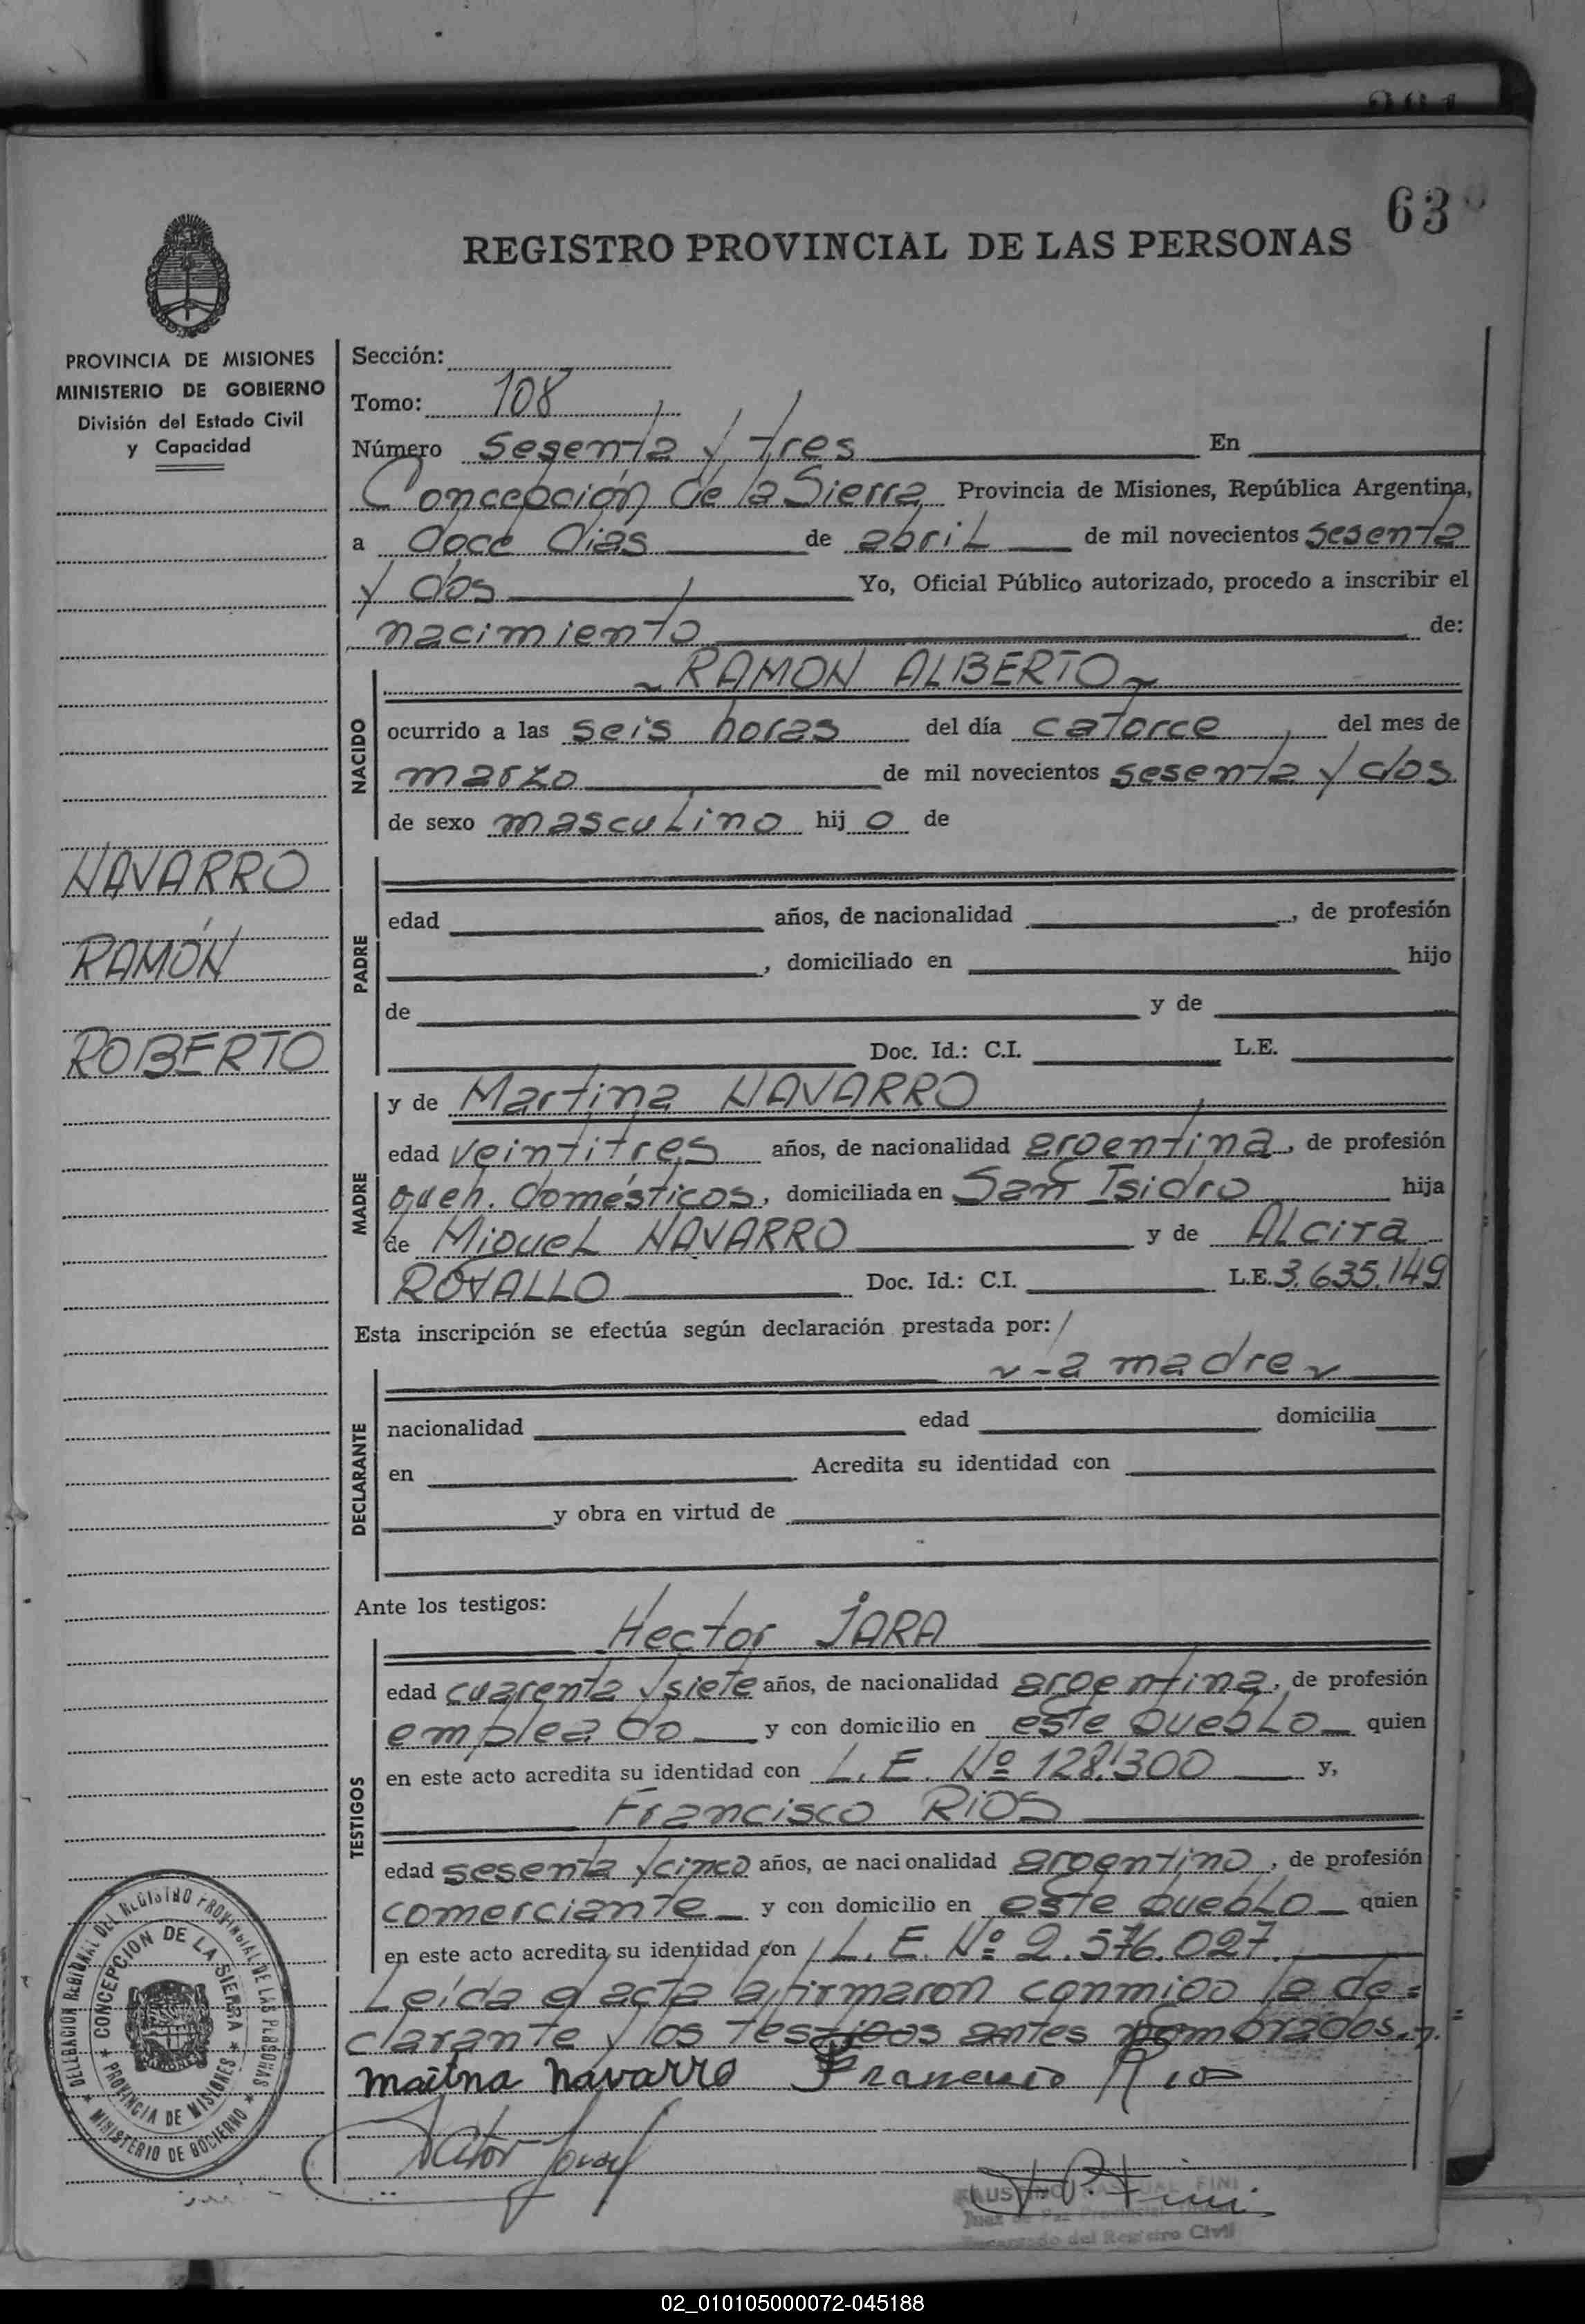 63
REGISTRO PROVINCIAL DE LAS PERSONAS
PROVINCIA DE MISIONES
MINISTERIO DE GOBIERNO
División del Estado Civil
y Capacidad
NAVARRO
RAMÓN
ROBERTO
Sección:
Tomo: 108
Número sesenta y tres En
Concepción de la Sierra Provincia de Misiones, República Argentina,
a doce dias de abril de mil novecientos sesenta
y dos Yo, Oficial Público autorizado, procedo a inscribir el
nacimiento de:
NACIDO
RAMON ALBERTO
ocurrido a las seis horas del día catorce del mes de
marzo de mil novecientos sesenta y dos
de sexo masculino hij o de
PADRE
edad años, de nacionalidad , de profesión
, domiciliado en hijo
de y de
Doc. Id.: C.I. L.E.
MADRE
y de Martina NAVARRO
edad veintitres años, de nacionalidad argentina, de profesión
queh. domésticos, domiciliada en San Isidro hija
de Miguel NAVARRO y de Alcira
Doc. Id.: C.I. L.E. 3.635.149
Esta inscripción se efectúa según declaración prestada por:
-a madre
DECLARANTE
nacionalidad edad domicilia
en Acredita su identidad con
y obra en virtud de
Ante los testigos:
TESTIGOS
Hector JARA
edad cuarenta y siete años, de nacionalidad argentina, de profesión
empleado y con domicilio en este pueblo quien
en este acto acredita su identidad con L. E. Nº 128.300 y,
Francisco RIOS
edad sesenta y cinco años, de nacionalidad argentino, de profesión
comerciante y con domicilio en este pueblo quien
en este acto acredita su identidad con L. E. Nº 2.576.027.
Leída el acta la firmaron conmigo la de=
clarante y los testigos antes nombrados.
Navarro Francisco Rios
DELEGACION REGIONAL DEL REGISTRO PROVINCIAL DE LAS PERSONAS
MINISTERIO DE GOBIERNO
CONCEPCION DE LA SIERRA
PROVINCIA DE MISIONES
FINI
Juez de Paz
Encargado del Registro Civil
02_010105000072-045188